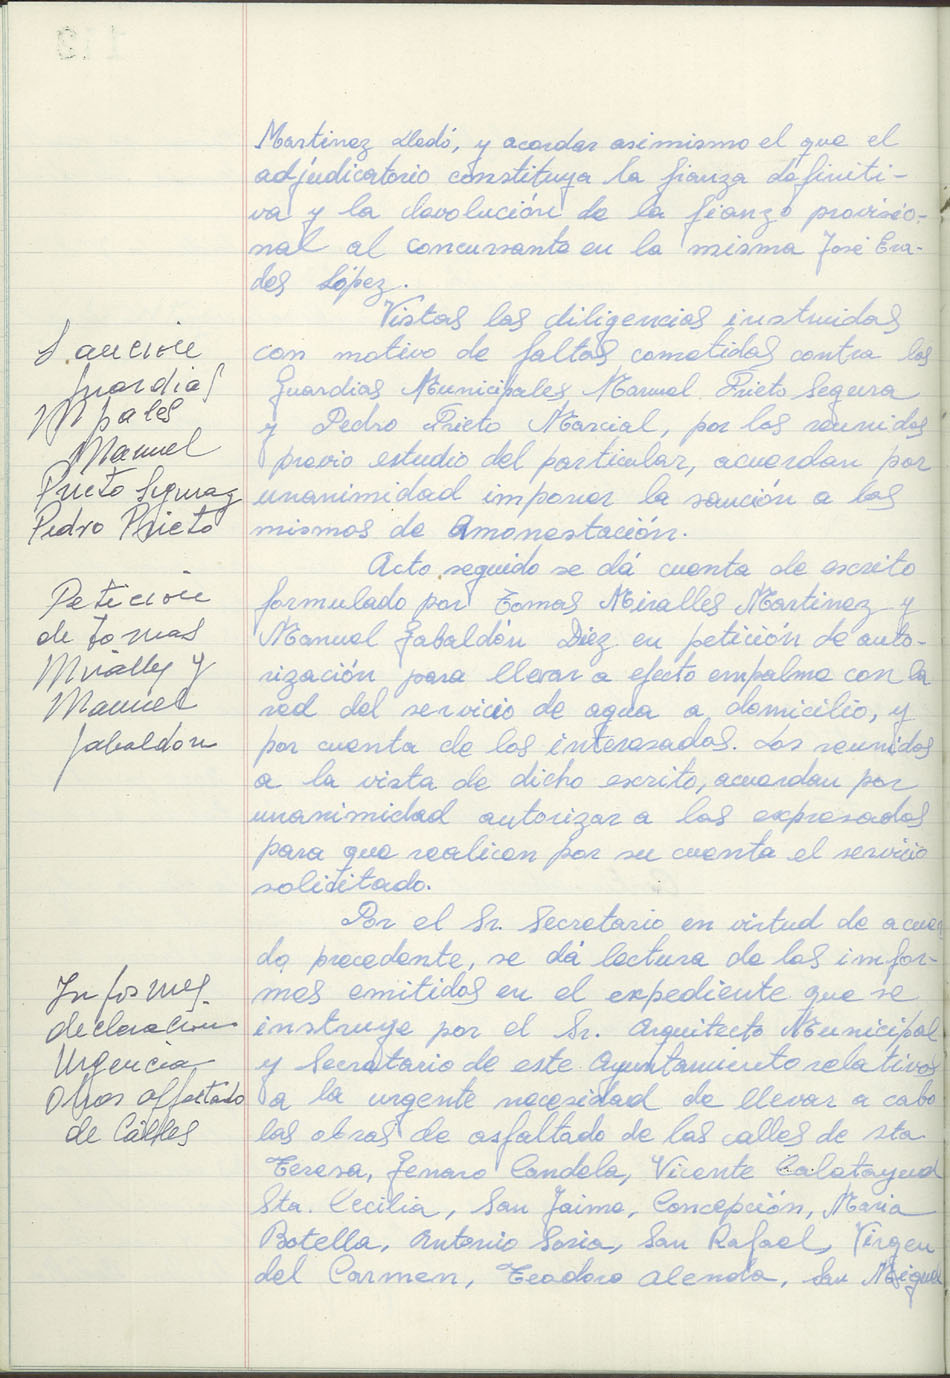 Martinez Lledó, y acordar asimismo el que el
adjudicatorio constituya la fianza definiti-
va y la devolución de la fianza provisio-
nal al concursante en la misma José Era-
des López.
Sancion
guardias
Mpales
Manuel
Prieto Segura y
Pedro Prieto
Vistas las diligencias instruidas
con motivo de faltas cometidas contra los
Guardias Municipales Manuel Prieto Segura
y Pedro Prieto Marcial, por los reunidos
previo estudio del particular, acuerdan por
unanimidad imponer la sanción a los
mismos de Amonestación.
Peticion
de tomas
Miralles y
Manuel
Jabaldon
Acto seguido se dá cuenta de escrito
formulado por Tomas Miralles Martinez y
Manuel Jabaldón Diez en petición de auto-
rización para llevar a efecto empalme con la
red del servicio de agua a domicilio, y
por cuenta de los interesados. Los reunidos
a la vista de dicho escrito, acuerdan por
unanimidad autorizar a los expresados
para que realicen por su cuenta el servicio
solicitado.
Informes
declaracion
Urgencia
Obras asfaltado
de Calles
Por el Sr. Secretario en virtud de acuer
do precedente, se dá lectura de los infor-
mes emitidos en el expediente que se
instruye por el Sr. Arquitecto Municipal
y Secretario de este Ayuntamiento relativos
a la urgente necesidad de llevar a cabo
las obras de asfaltado de las calles de Sta
Teresa, Genaro Candela, Vicente Calatayud
Sta. Cecilia, San Jaime, Concepción, Maria
Botella, Antonio Soria, San Rafael, Virgen
del Carmen, Teodoro Alenda, San Miguel